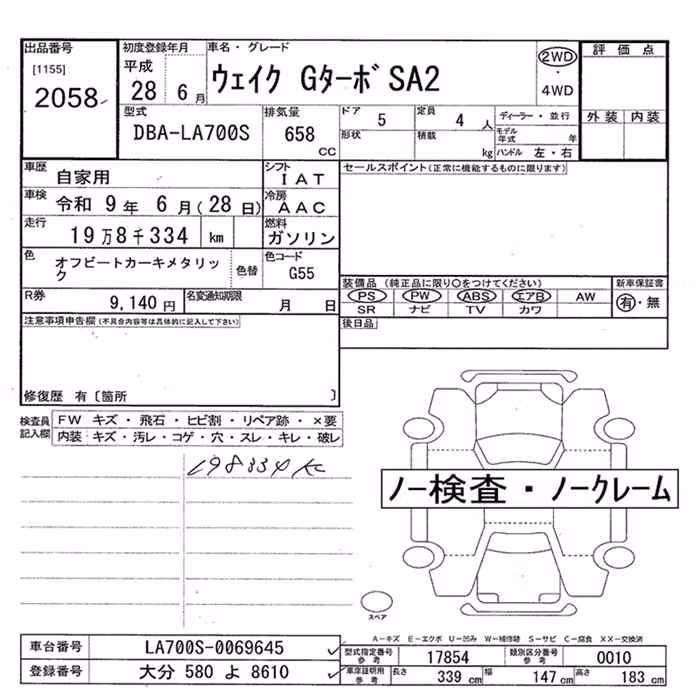 出品番号
[1155]
2058
初度登録年月
平成
28 6月
車名・グレード
ウェイク GターボSA2
2WD
・
4WD
評価点
外装 内装
型式
DBA-LA700S
排気量
658
CC
ドア 5
形状
定員 4 人
積載 kg
ディーラー・並行
モデル年式 年
ハンドル 左・右
車歴
自家用
シフト
IAT
車検
令和 9年 6月(28日)
冷房
AAC
走行
19万8千334 km
燃料
ガソリン
色
オフビートカーキメタリック
色替
色コード
G55
R券
9,140円
名変通知期限
月 日
セールスポイント(正常に機能するものに限ります)
装備品 (純正品に限り○をつけてください)
PS PW ABS エアB AW
SR ナビ TV カワ
新車保証書
有・無
後日品
注意事項申告欄(不具合内容等は具体的に記入して下さい)
修復歴 有〔箇所 〕
検査員記入欄
FW キズ・飛石・ヒビ割・リペア跡・×要
内装 キズ・汚レ・コゲ・穴・スレ・キレ・破レ
198334K
ノー検査・ノークレーム
スペア
A-キズ E-エクボ U-凹み W-補修跡 S-サビ C-腐食 XX-交換済
車台番号 LA700S-0069645
登録番号 大分 580 よ 8610
型式指定番号 参考 17854
類別区分番号 参考 0010
車庫証明用 参考 長さ 339 cm 幅 147 cm 高さ 183 cm